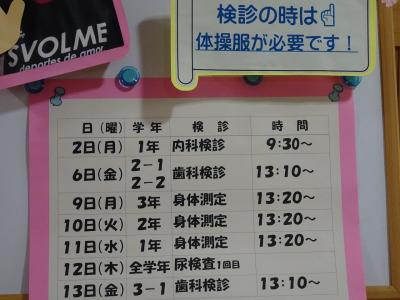 SVOLME
deportes de amor
検診の時は☝
体操服が必要です！
日（曜） 学年 検診 時間
2日（月） 1年 内科検診 9:30～
6日（金） 2－1 2－2 歯科検診 13:10～
9日（月） 3年 身体測定 13:20～
10日（火） 2年 身体測定 13:20～
11日（水） 1年 身体測定 13:20～
12日（木） 全学年 尿検査1回目
13日（金） 3－1 歯科検診 13:10～